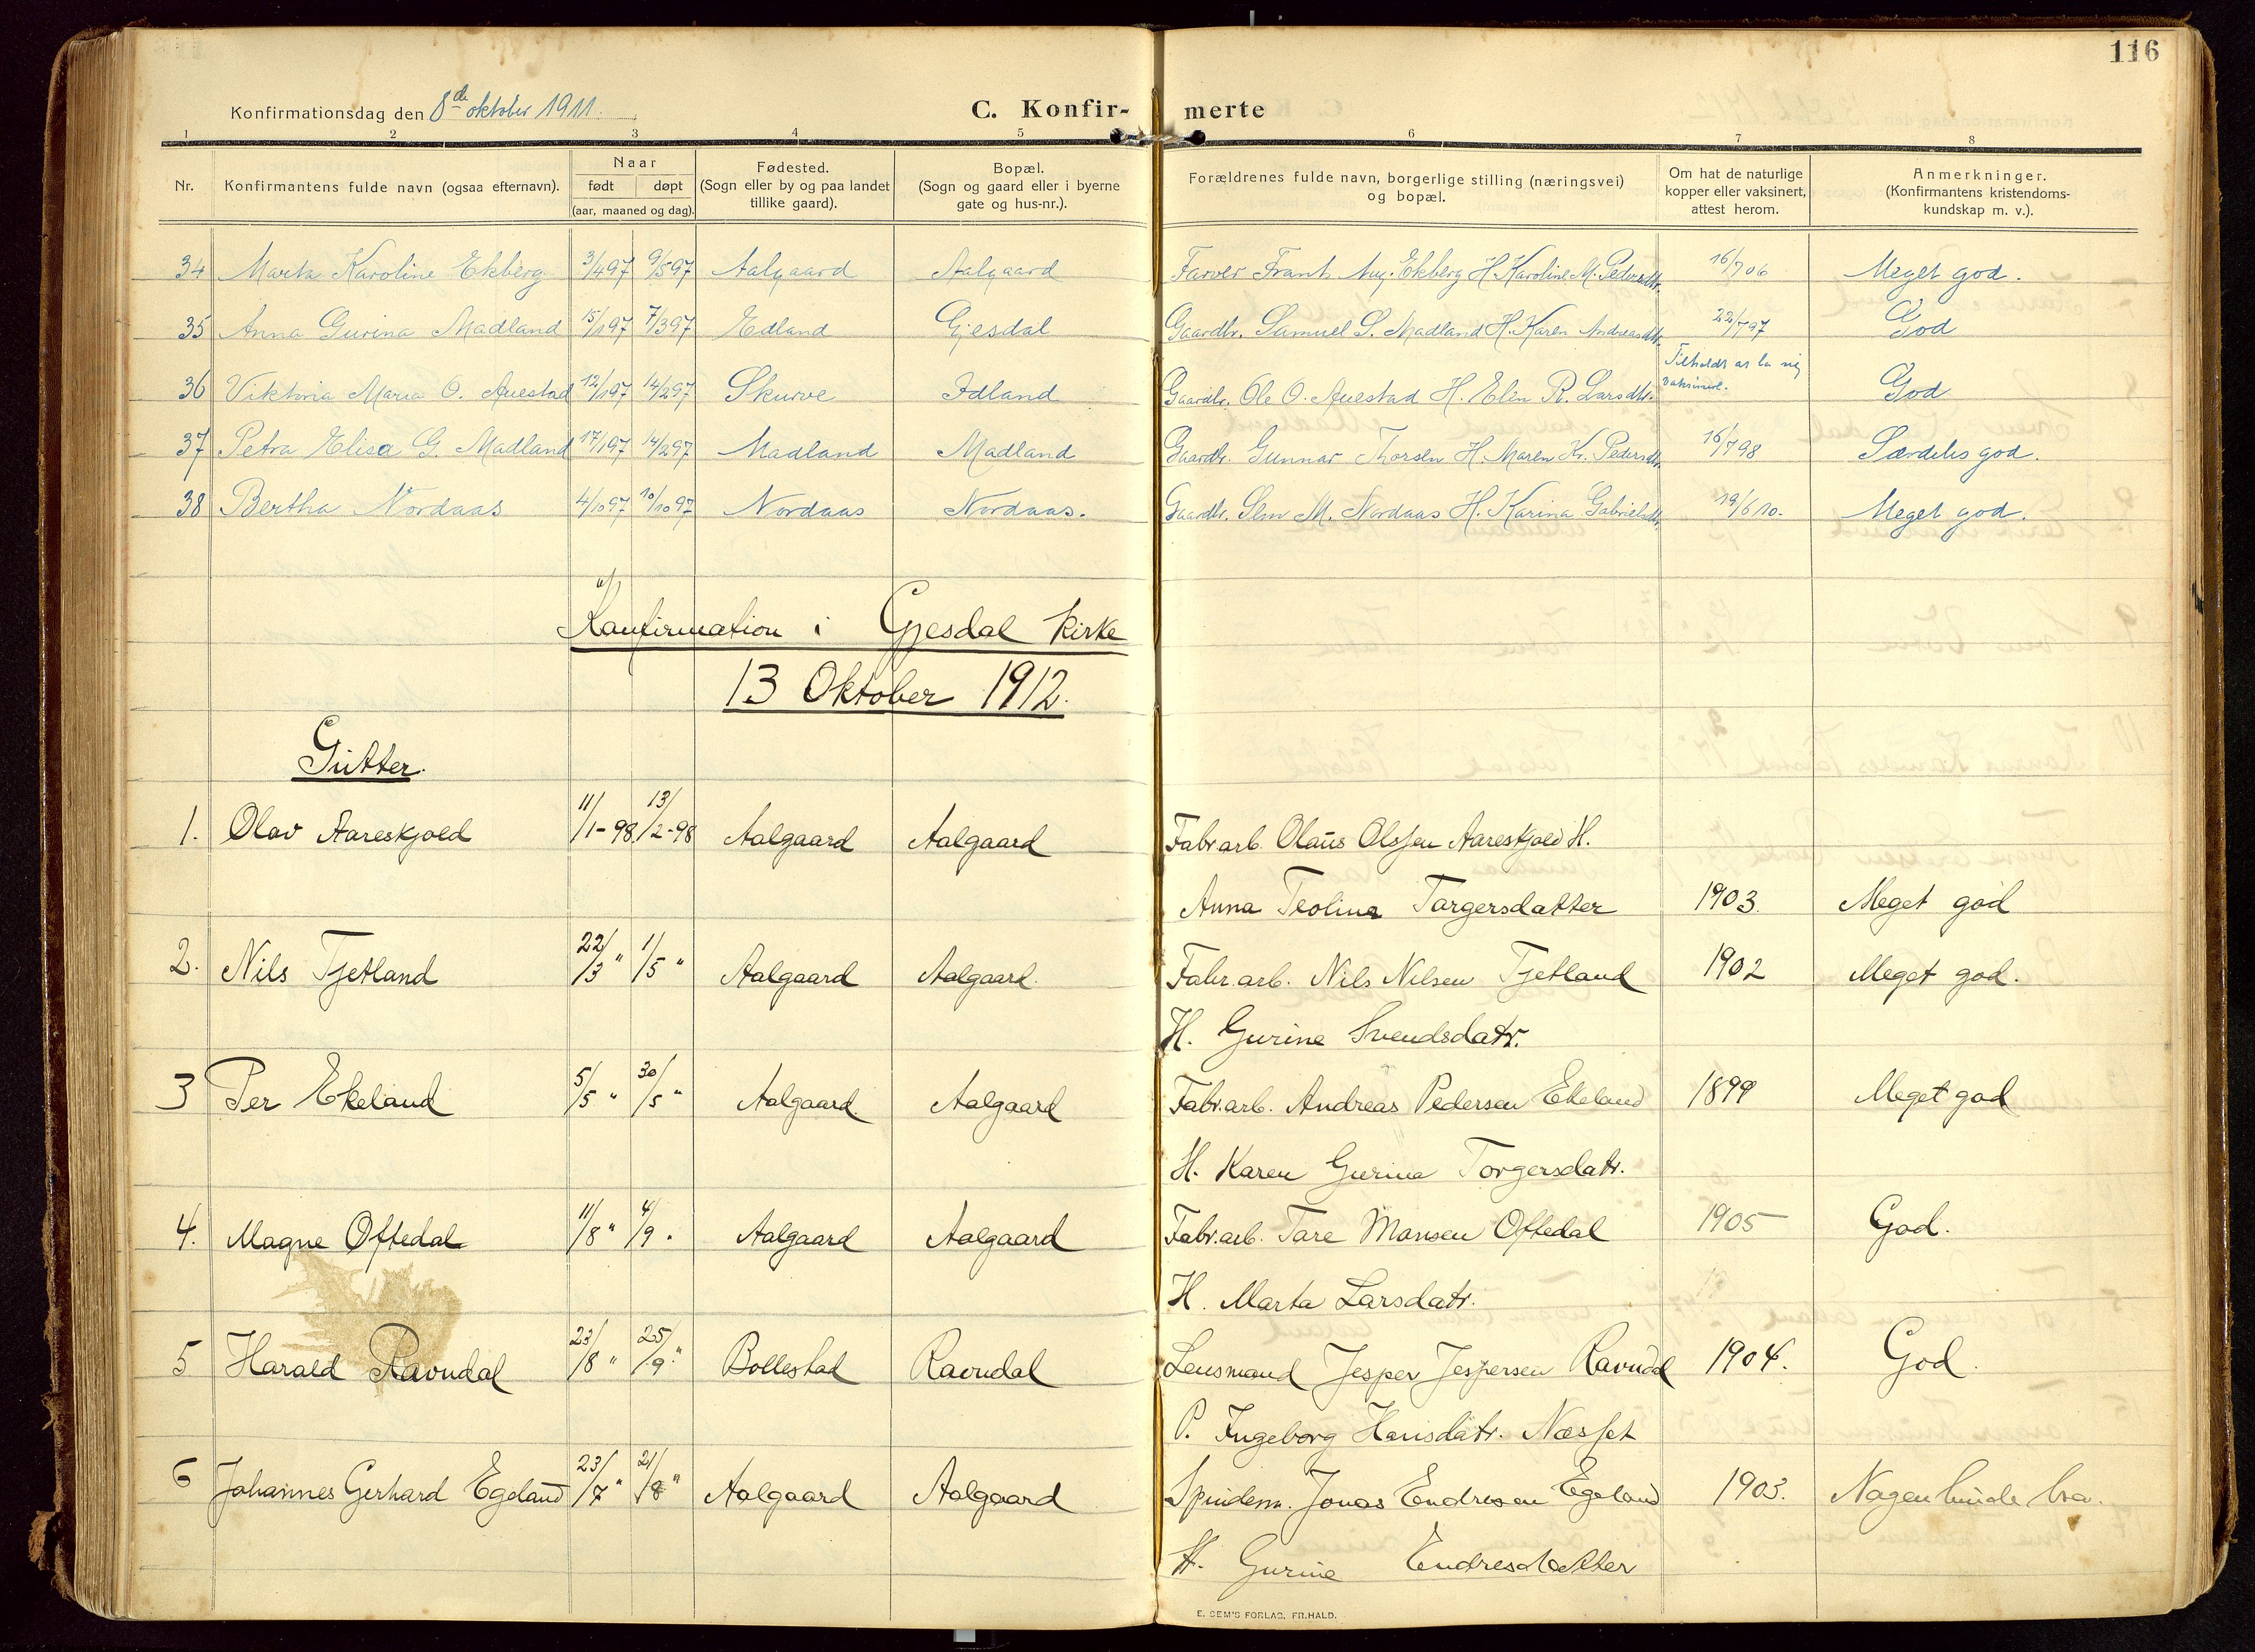 116
Konfirmationsdag den 8de oktober 1911.
C. Konfir- merte
1 2 3 4 5 6 7 8
Nr.
Konfirmantens fulde navn (ogsaa efternavn).
Naar
født døpt
(aar, maaned og dag).
Fødested.
(Sogn eller by og paa landet
tillike gaard).
Bopæl.
(Sogn og gaard eller i byerne
gate og hus-nr.).
Forældrenes fulde navn, borgerlige stilling (næringsvei)
og bopæl.
Om hat de naturlige
kopper eller vaksinert,
attest herom.
Anmerkninger.
(Konfirmantens kristendoms-
kundskap m. v.).
34 Marta Karoline Ekberg 3/4 97 9/5 97 Aalgaard Aalgaard Farver Frant Aug. Ekberg H. Karoline M. Pedersdtr. 16/7 06 Meget god.
35 Anna Gurina Madland 15/1 97 7/3 97 Edland Gjesdal Gaardbr. Samuel S. Madland H. Karen Andreasdtr. 22/7 97 God
36 Viktoria Maria O. Auestad 12/1 97 14/2 97 Skurve Idland Gaardbr. Ole O. Auestad H. Elen R. Larsdtr. Tilholdt at la sig
vaksinere. God
37 Petra Elisa G. Madland 17/1 97 14/2 97 Madland Madland Gaardbr. Gunnar Thorsen H. Maren Kr. Pedersdtr. 16/7 98 Særdeles god.
38 Bertha Nordaas 4/10 97 10/10 97 Nordaas Nordaas. Gaardbr. M. Nordaas H. Karina Gabrielsdtr. 19/6 10. Meget god.
Konfirmation i Gjesdal Kirke
13 Oktober 1912.
Gutter.
1. Olav Aareskjold 11/1-98 13/2-98 Aalgaard Aalgaard Fabr.arb. Olaus Olssen Aareskjold H.
Anna Teolina Torgersdatter 1903. Meget god
2. Nils Tjetland 22/3 " 1/5 " Aalgaard Aalgaard. Fabr.arb. Nils Nilsen Tjetland 1902 Meget god.
H. Gurine Svendsdatr.
3 Per Ekeland 5/5 " 30/5 " Aalgaard. Aalgaard Fabr.arb. Andreas Pedersen Ekeland 1899 Meget god
H. Karen Gurina Torgersdatr.
4. Magne Oftedal 11/8 " 4/9 " Aalgaard Aalgaard Fabr.arb. Tore Monsen Oftedal 1905 God.
H. Marta Larsdatr.
5 Harald Ravndal 23/8 " 25/9 " Bollestad Ravndal Lensmand Jesper Jespersen Ravndal 1904. God.
P. Ingeborg Hansdatr. Næsset
6 Johannes Gerhard Egeland 23/7 " 21/8 " Aalgaard Aalgaard Spindem. Jonas Endresen Egeland 1903. Nogenlunde bra.
H. Gurine Endresdatter
E. SEM'S FORLAG, FR.HALD.